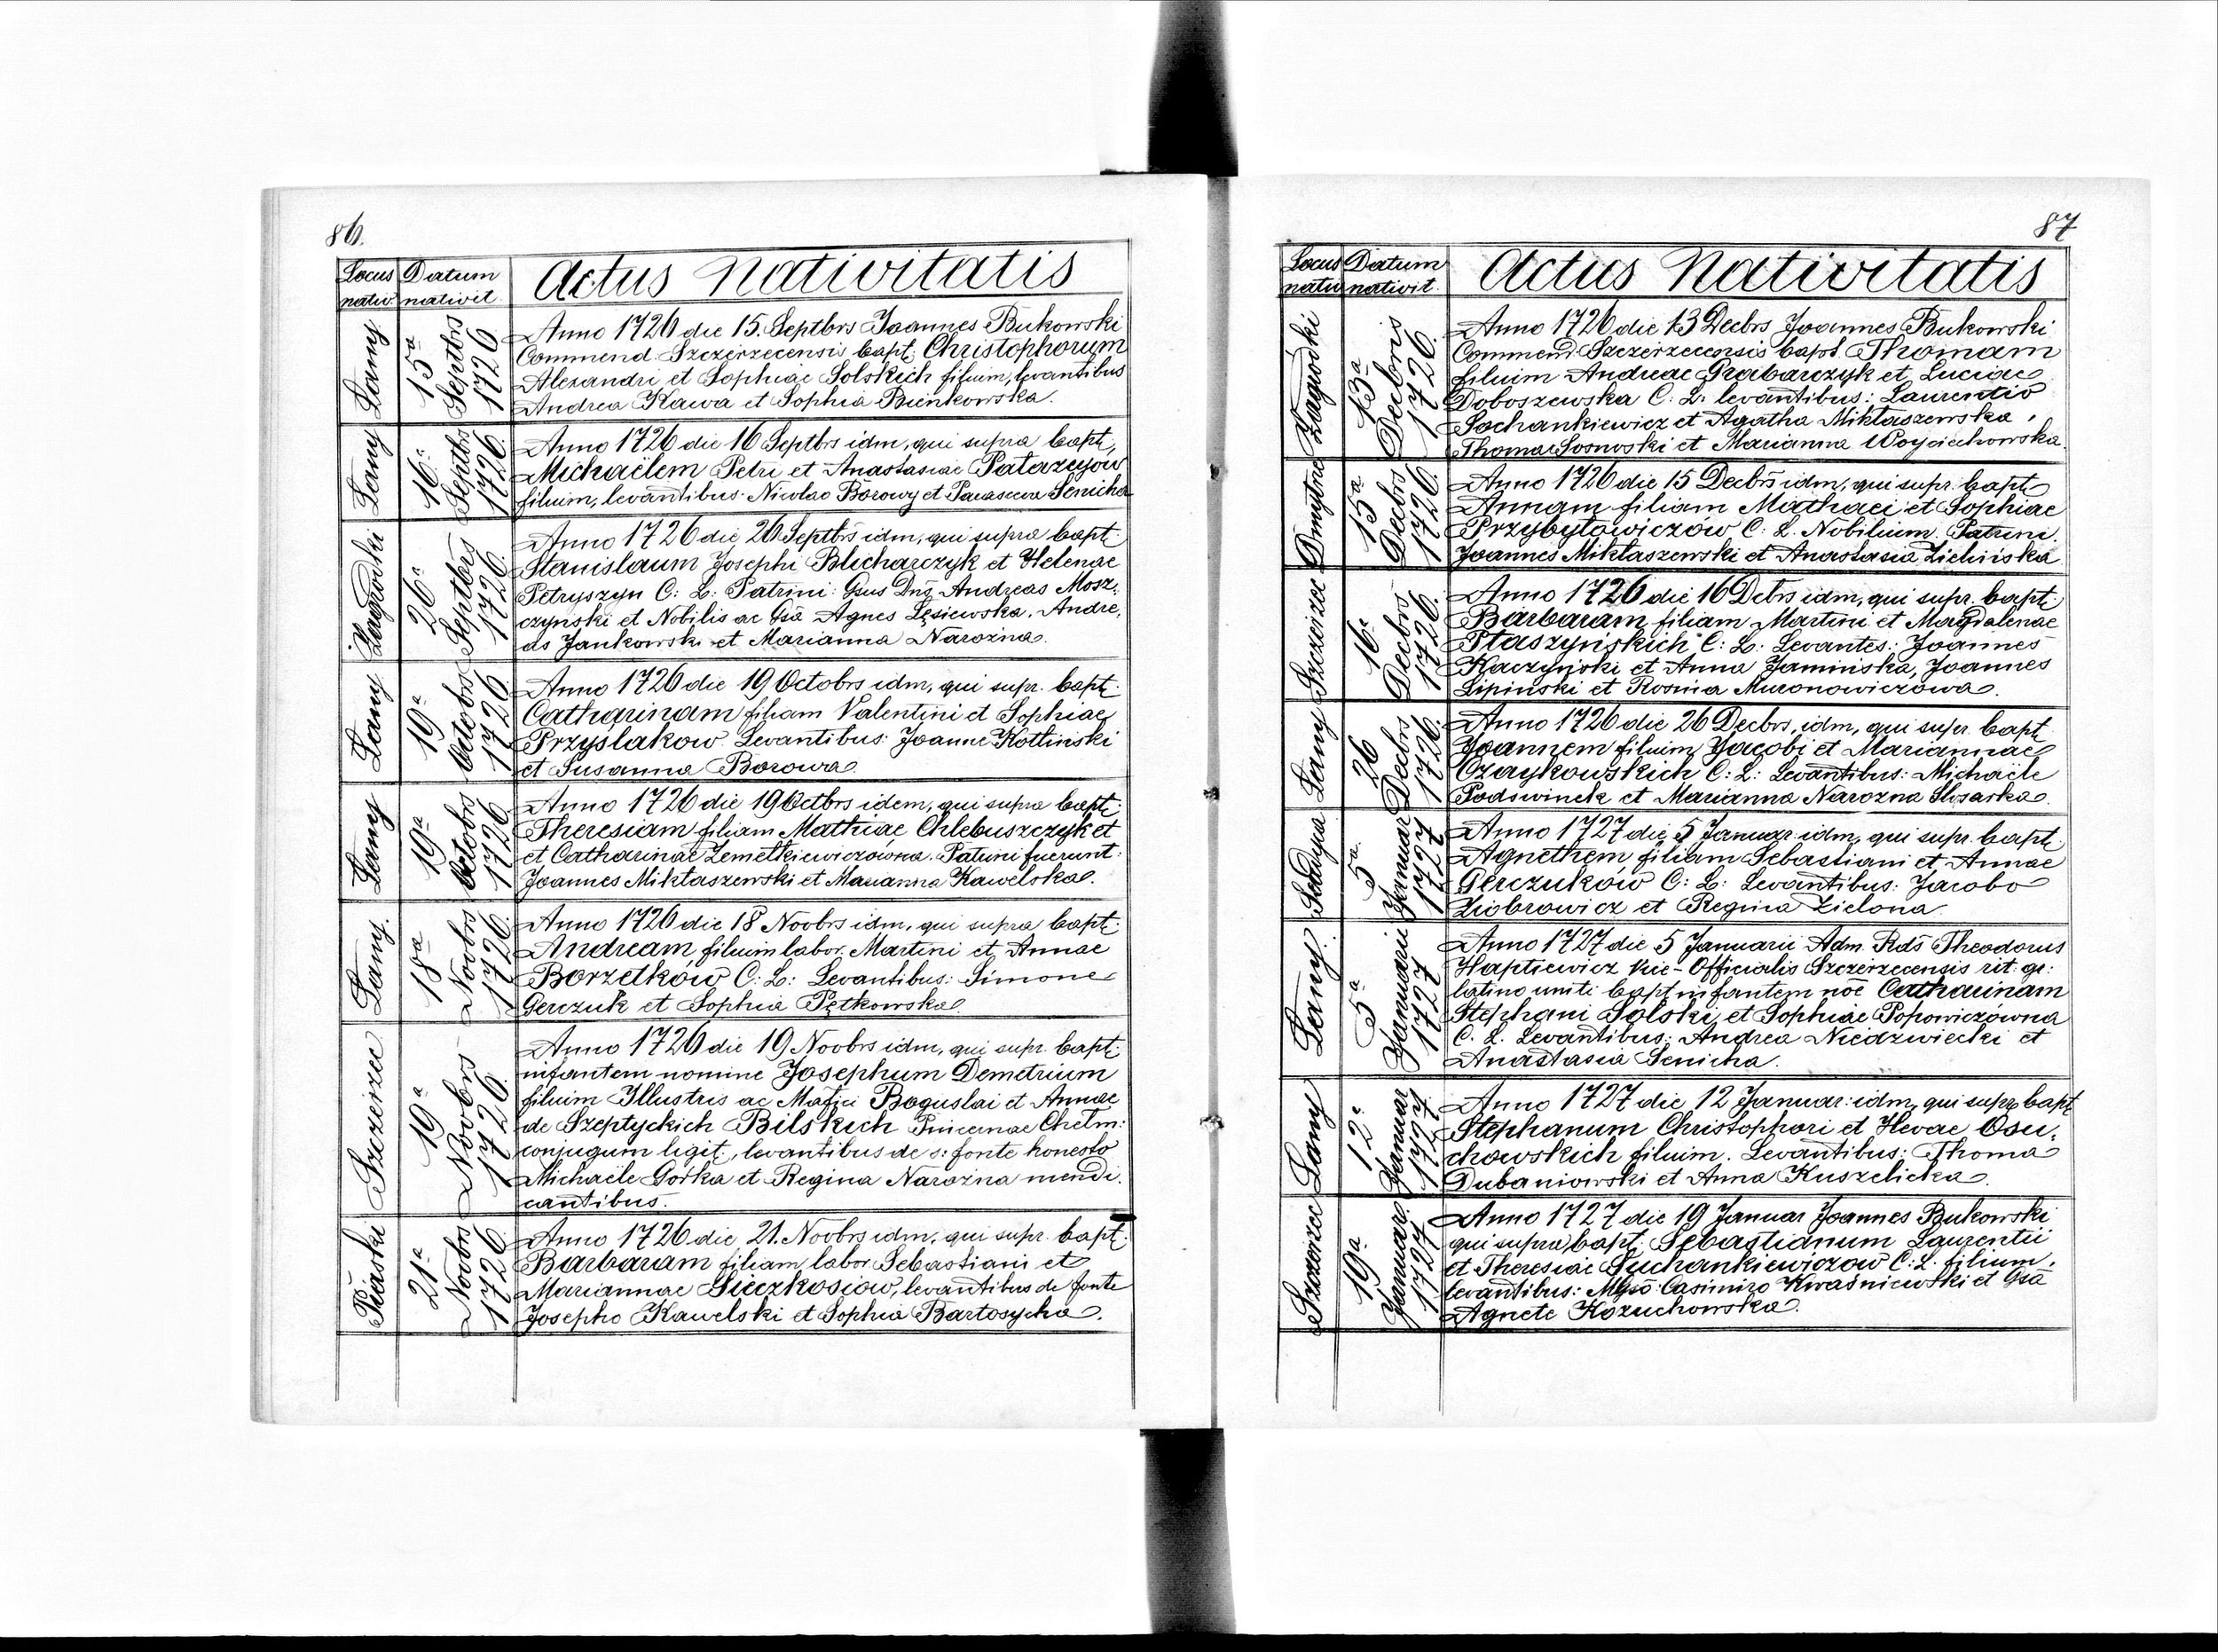 86.
Locus nativ
Datum nativit.
Actus Nativitatis
Łany
15a Septbrs 1726
Anno 1726 die 15. Septbrs Joannes Bukowski
Commend Szczerzecensis bapt: Christophorum
Alexandri et Sophiae Solskich filium, levantibus
Andrea Kawa et Sophia Bieńkowska.
Łany
16a Septbr 1726.
Anno 1726 die 16 Septbrs idm, qui supra bapt,
Michaëlem Petri et Anastasiae Patarzyjow
filium, levantibus: Nicolao Borowy et Parascewa Senicha
Zagrodki
26a Septbrs 1726.
Anno 1726 die 26 Septbrs idm, qui supra bapt:
Stanislaum Josephi Blicharczyk et Helenae
Petryszyn C: L: Patrini: Gsus Dns Andreas Mosz,
czynski et Nobilis ac Gsa Agnes Lęsiewska. Andre,
as Jankowski et Marianna Narożna.
Łany
19a Octobrs 1726
Anno 1726 die 19 Octobrs idm, qui supr. bapt:
Catharinam filiam Valentini et Sophiae
Przyslakow. Levantibus: Joanne Kotliński
et Susanna Borowa.
Łany
19a Octobrs 1726
Anno 1726 die 19 Octbrs idem, qui supra bapt:
Theresiam filiam Mathiae Chlebuszczyk et
et Catharinae Zemełkiewiczówna. Patrini fuerunt:
Joannes Miktaszewski et Marianna Kawelska.
Łany.
18a Novbrs 1726.
Anno 1726 die 18 Novbrs idm, qui supra bapt:
Andream filium labor. Martini et Annae
Borzetków C: L: Levantibus: Simone
Gerczuk et Sophia Pętkowska.
Szczerzec
19a Novbrs 1726.
Anno 1726 die 19 Novbrs idm, qui supr. bapt:
infantem nomine Josephum Demetrium
filium Illustris ac Mafici Boguslai et Annae
de Szeptyckich Bilskich Pincernae Chełm:
conjugum ligit:, levantibus de s: fonte honesto
Michaële Gorka et Regina Narożna mendi.
cantibus.
Piaski
21a Novbrs 1726
Anno 1726 die 21. Novbrs idm, qui supr. bapt:
Barbaram filiam labor Sebastiani et
Mariannae Sieczkosiow, levantibus de fonte
Josepho Kawelski et Sophia Bartosycha.
87
Locus nativ
Datum nativit.
Actus Nativitatis
Zagrodki
13a Decbris 1726.
Anno 1726 die 13 Decbrs Joannes Bukowski
Commend Szczerzecensis bapt Thomam
filium Andreae Grabarczyk et Luciae
Doboszewska C: L: levantibus: Laurentio
Sochankiewicz et Agatha Miktaszewska,
Thoma Sosnoski et Marianna Woyciechowska
Dmytrze
15a Decbrs 1726.
Anno 1726 die 15 Decbrs idm, qui supr. bapt
Annam filiam Mathaei et Sophiae
Przybytowiczów C: L. Nobilium. Patrini.
Joannes Miktaszewski et Anastasia Zielińska
Szczerzec
16a Decbrs 1726.
Anno 1726 die 16 Debrs idm, qui supr. bapt:
Barbaram filiam Martini et Magdalenae
Ptaszyńskich C: L: Levantes: Joannes
Kaczyński et Anna Jamińska, Joannes
Lipiński et Rosnia Muronowiczowa.
Łany
26 Decbrs 1726.
Anno 1726 die 26 Decbrs, idm, qui supr. bapt
Joannem filium Jacobi et Mariannae
Czaykowskich C: L: Levantibus: Michaële
Podswinek et Marianna Narozna Slosarka.
5a Januar 1727
Anno 1727 die 5 Januar: idm, qui supr. bapt:
Agnethem filiam Sebastiani et Annae
Gerczuków C: L: Levantibus: Jacobo
Ziobrowicz et Regina Zielona.
Łany.
5a Januarii 1727
Anno 1727 die 5 Januarii Adm. Rds Theodorus
Haptiewicz Vice-Officialis Szczerzecensis rit: gr:
latino uniti bapt infantem noe Catharinam
Stephani Solski et Sophiae Popowiczówna
C. L. Levantibus: Andrea Niedzwiecki et
Anastasia Senicha.
Łany
12a Januar 1727
Anno 1727 die 12 Januar: idm, qui supr bapt
Stephanum Christophori et Hevae Osu,
chowskich filium. Levantibus: Thoma
Dubaniowski et Anna Kuszelicka.
Szczerzec
19a Januar: 1727
Anno 1727 die 19 Januar Joannes Bukowski
qui supra, bapt: Sebastianum Laurentii
et Theresiae Suchankiewiczow C: L. filium,
levantibus: Mgso Casimiro Kwaśniewski et Gsa
Agnete Kozuchowska.